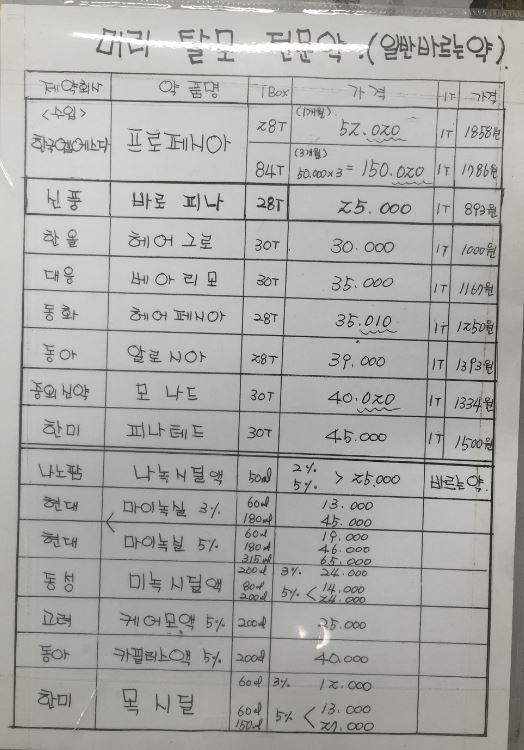 머리 탈모 전문약.(일반바르는약).
제약회사 약 품명 1Box 가격 1T 가격
<수입> 한국엠에스디 프로페시아 28T (1개월) 52.020 1T 1858원
84T (3개월) 50.000x3=150.020 1T 1786원
신풍 바로 피나 28T 25.000 1T 893원
한올 헤어 그로 30T 30.000 1T 1000원
대웅 베아리모 30T 35.000 1T 1167원
동화 헤어페시아 28T 35.010 1T 1250원
동아 알로시아 28T 39,000 1T 1393원
중외신약 모 나드 30T 40.020 1T 1334원
한미 피나테드 30T 45.000 1T 1500원
나노팜 나녹시딜액 50ml 2% 5% > 25,000 바르는약.
현대 < 마이녹실 3% 60ml 13.000
180ml 45.000
현대 마이녹실 5% 60ml 19.000
180ml 46.000
315ml 65.000
동성 미녹시딜액 200ml 3% 24.000
80ml 5% < 14.000
200ml 24.000
고려 케어모액 5% 200ml 35.000
동아 카필러스액 5% 200ml 40.000
한미 목시딜 60ml 3% 12.000
60ml 5% < 13.000
150ml 27.000